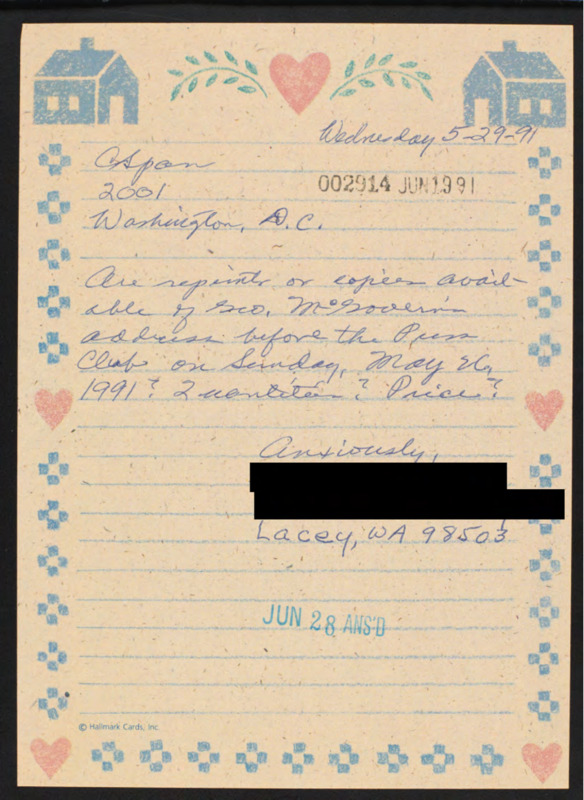 Wednesday 5-29-91
CSpan
002914 JUN1991
2001
Washington, D.C.
Are reprints or copies avail-
able of Geo. McGovern's
address before the Press
Club on Sunday, May 26,
1991? Quantities? Price?
Anxiously,
Lacey, WA 98503
JUN 28 ANS'D
© Hallmark Cards, Inc.